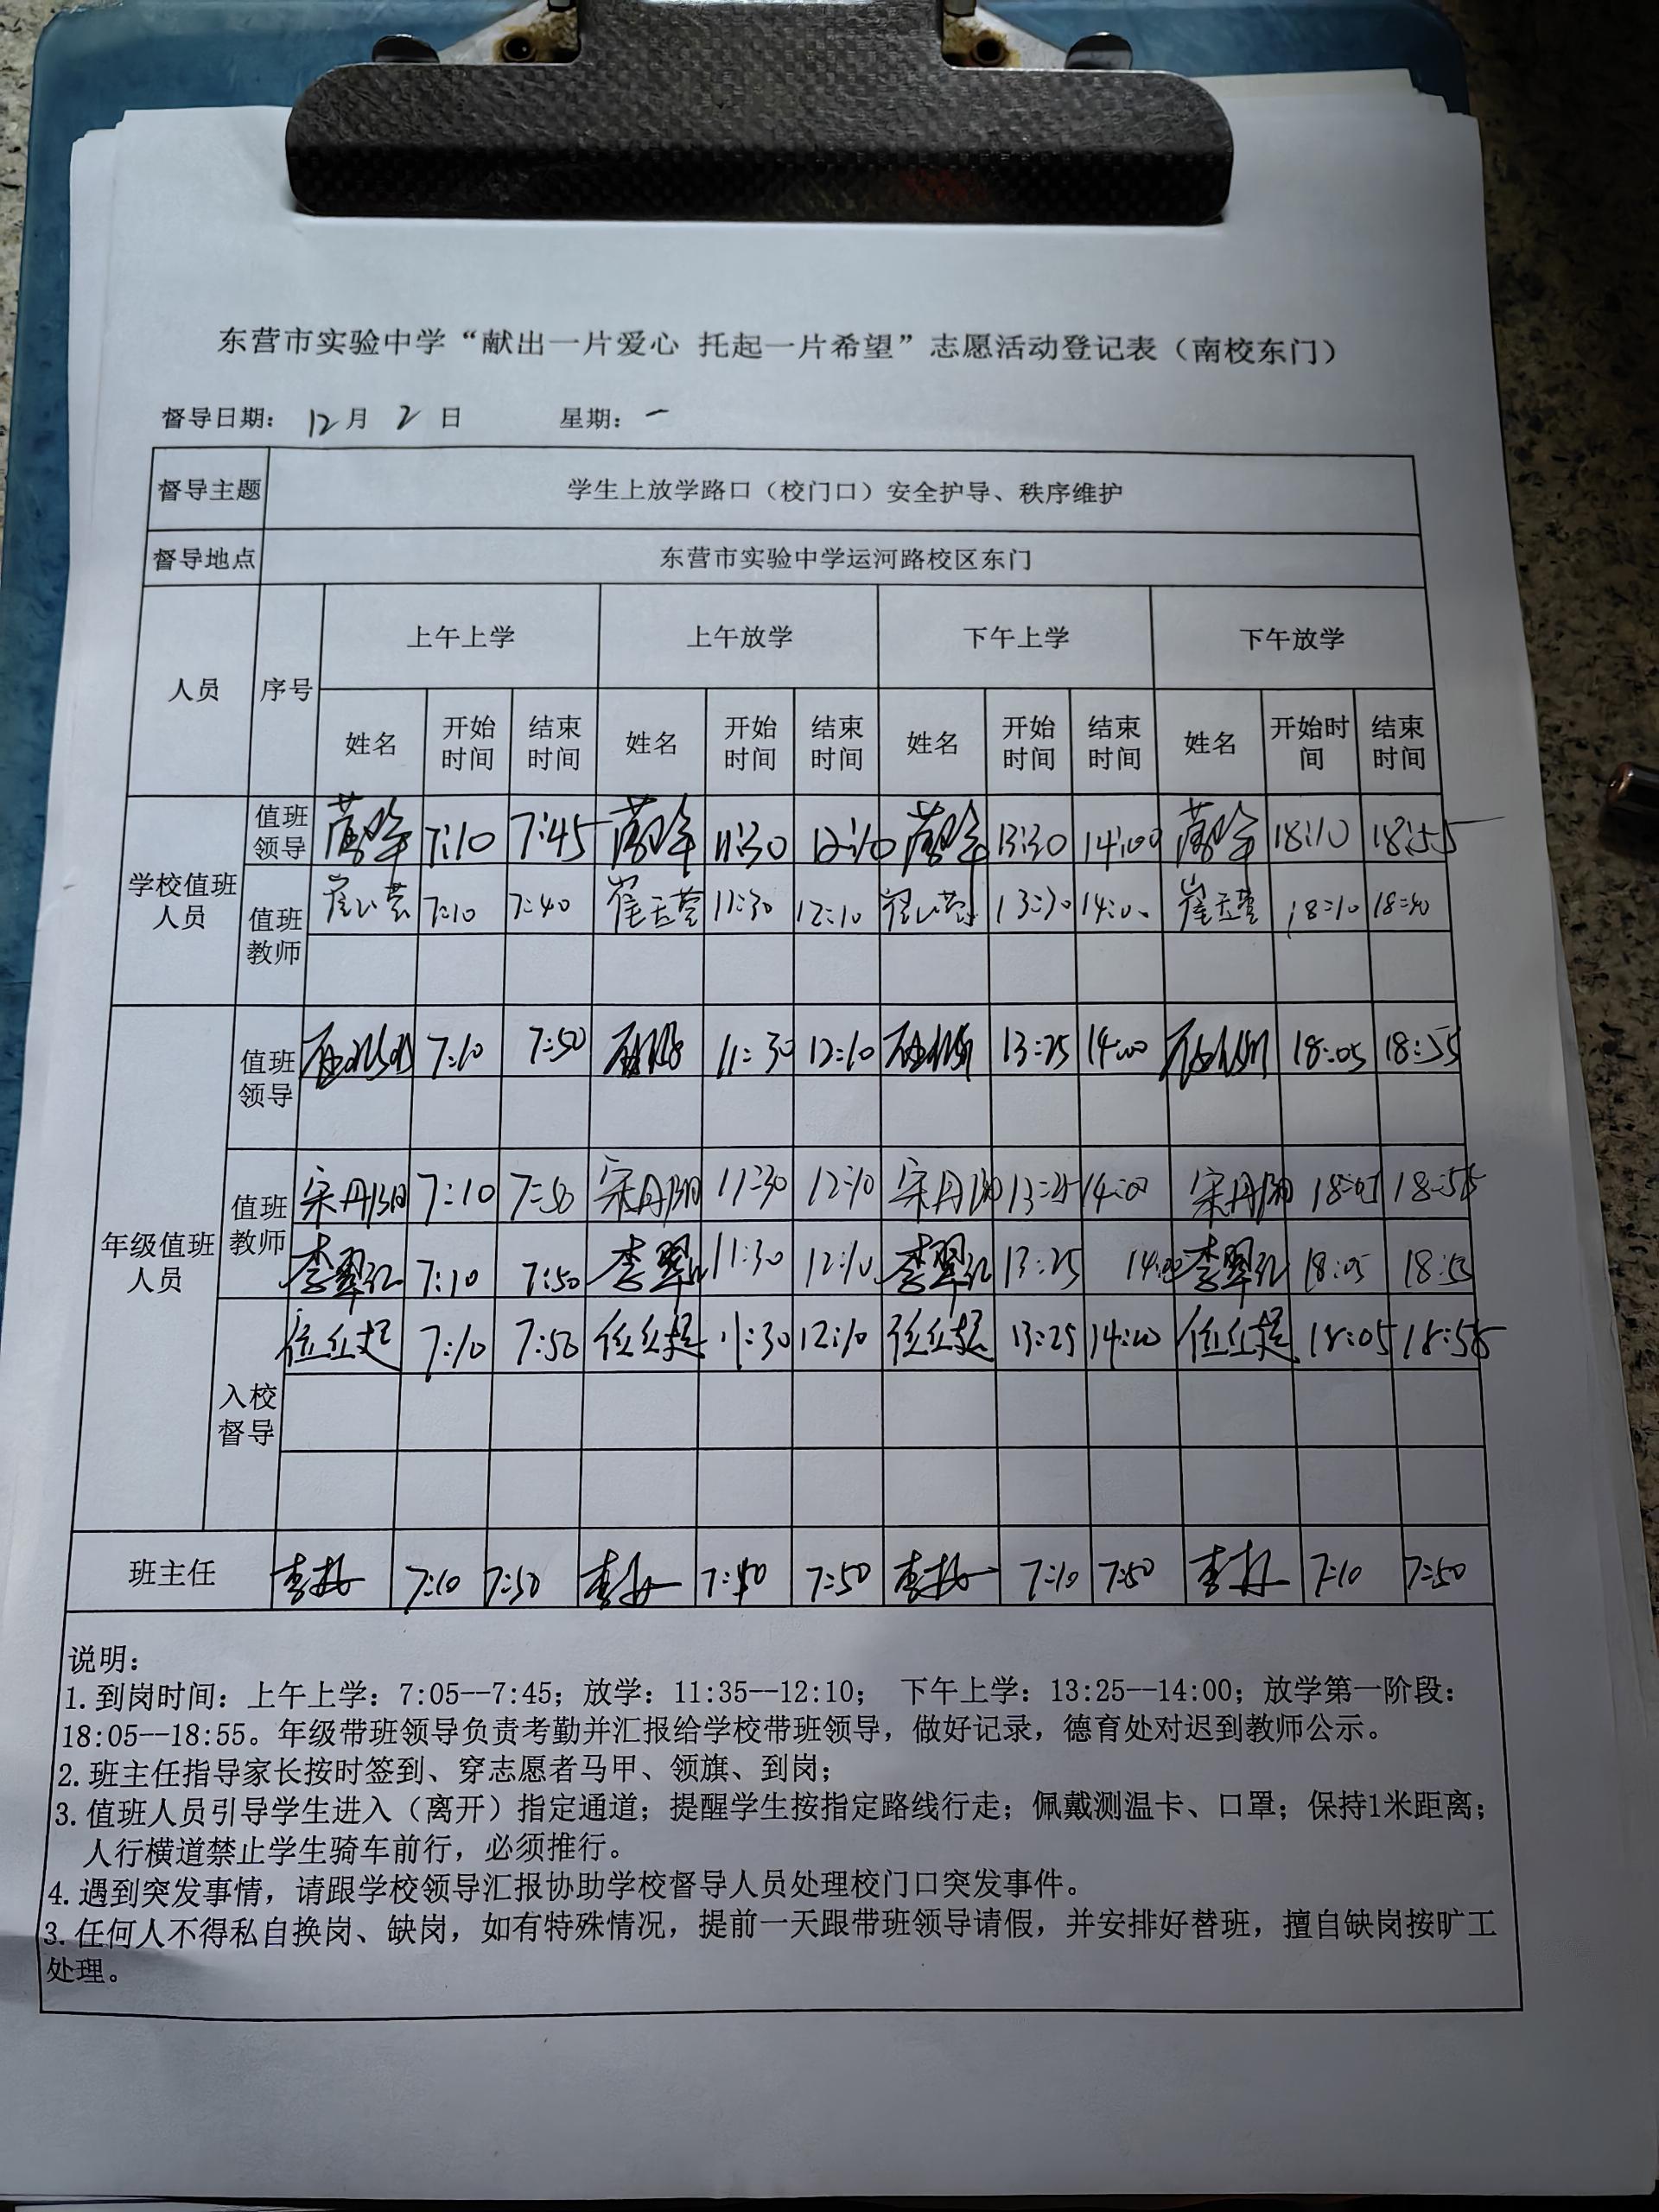 东营市实验中学“献出一片爱心 托起一片希望”志愿活动登记表（南校东门）
督导日期： 12月 2 日 星期：一
督导主题 学生上放学路口（校门口）安全护导、秩序维护
督导地点 东营市实验中学运河路校区东门
人员 序号 上午上学 上午放学 下午上学 下午放学
姓名 开始时间 结束时间 姓名 开始时间 结束时间 姓名 开始时间 结束时间 姓名 开始时间 结束时间
学校值班人员
值班领导 7:10 7:45 11:30 12:10 13:30 14:00 18:10 18:55
值班教师 7:10 7:40 崔玉莹 11:30 12:10 13:30 14:00 崔玉莹 18:10 18:40
年级值班人员
值班领导 7:10 7:50 11:30 12:10 13:25 14:00 18:05 18:55
值班教师 宋丹阳 7:10 7:50 宋丹阳 11:30 12:10 宋丹阳 13:25 14:00 宋丹阳 18:05 18:55
李翠红 7:10 7:50 李翠红 11:30 12:10 李翠红 13:25 14:00 李翠红 18:05 18:55
入校督导 位红起 7:10 7:50 位红起 11:30 12:10 位红起 13:25 14:00 位红起 18:05 18:55
班主任 7:10 7:50 7:50 7:10 7:50 7:10 7:50
说明：
1.到岗时间：上午上学：7:05--7:45；放学：11:35--12:10； 下午上学：13:25--14:00；放学第一阶段：
18:05--18:55。年级带班领导负责考勤并汇报给学校带班领导，做好记录，德育处对迟到教师公示。
2.班主任指导家长按时签到、穿志愿者马甲、领旗、到岗；
3.值班人员引导学生进入（离开）指定通道；提醒学生按指定路线行走；佩戴测温卡、口罩；保持1米距离；
人行横道禁止学生骑车前行，必须推行。
4.遇到突发事情，请跟学校领导汇报协助学校督导人员处理校门口突发事件。
3.任何人不得私自换岗、缺岗，如有特殊情况，提前一天跟带班领导请假，并安排好替班，擅自缺岗按旷工
处理。